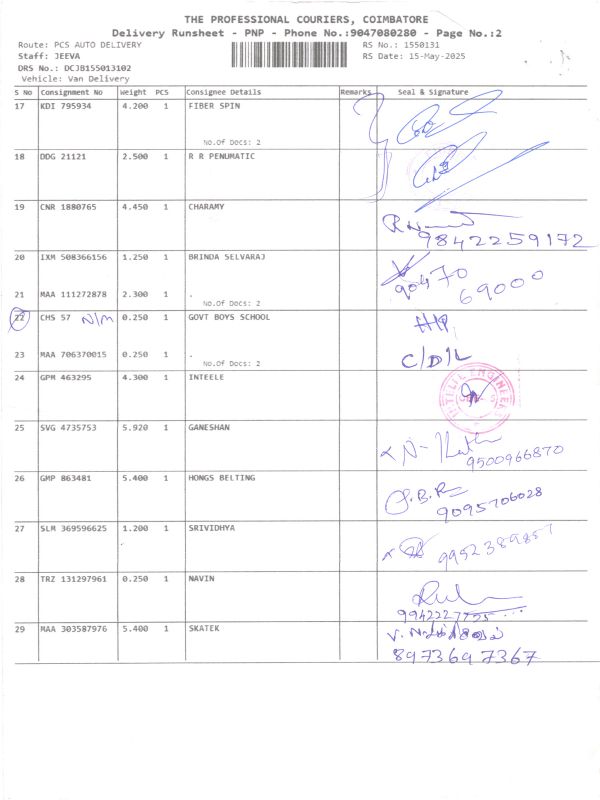 THE PROFESSIONAL COURIERS, COIMBATORE
Delivery Runsheet - PNP - Phone No.:9047080280 - Page No.:2
Route: PCS AUTO DELIVERY RS No.: 1550131
Staff: JEEVA RS Date: 15-May-2025
DRS No.: DCJB155013102
Vehicle: Van Delivery
S No Consignment No Weight PCS Consignee Details Remarks Seal & Signature
17 KDI 795934 4.200 1 FIBER SPIN
No.Of Docs: 2
18 DDG 21121 2.500 1 R R PENUMATIC
19 CNR 1880765 4.450 1 CHARAMY
9842259172
20 IXM 508366156 1.250 1 BRINDA SELVARAJ
90470
69000
21 MAA 111272878 2.300 1 .
No.Of Docs: 2
22 CHS 57 N/M 0.250 1 GOVT BOYS SCHOOL
23 MAA 706370015 0.250 1 . C/D/L
No.Of Docs: 2
24 GPM 463295 4.300 1 INTEELE
25 SVG 4735753 5.920 1 GANESHAN
9500966870
26 GMP 863481 5.400 1 HONGS BELTING
9095706028
27 SLM 369596625 1.200 1 SRIVIDHYA
9952389857
28 TRZ 131297961 0.250 1 NAVIN
9942227725
29 MAA 303587976 5.400 1 SKATEK
8973697367